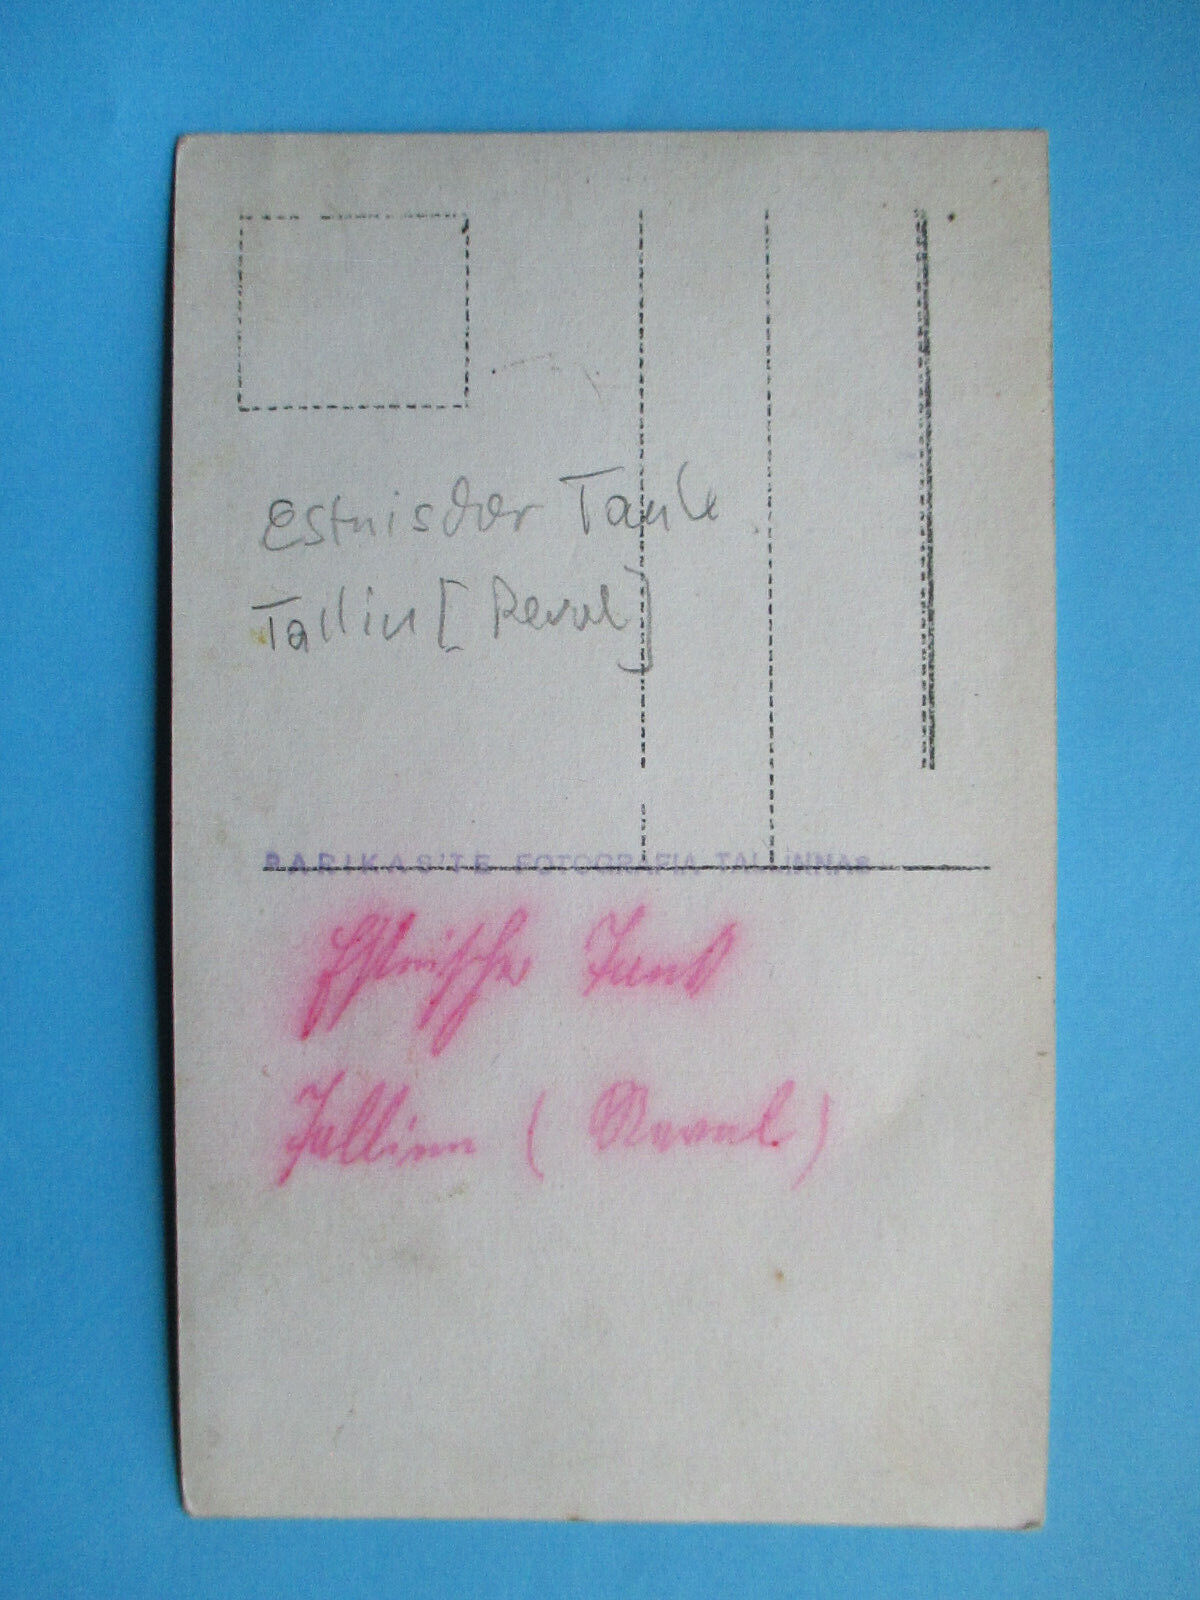 Estnischer Tank
Tallin [Reval]
PARIKAS'TE FOTOGRAFIA TALLINNAS
Estnischer Tank
Tallinn (Reval)